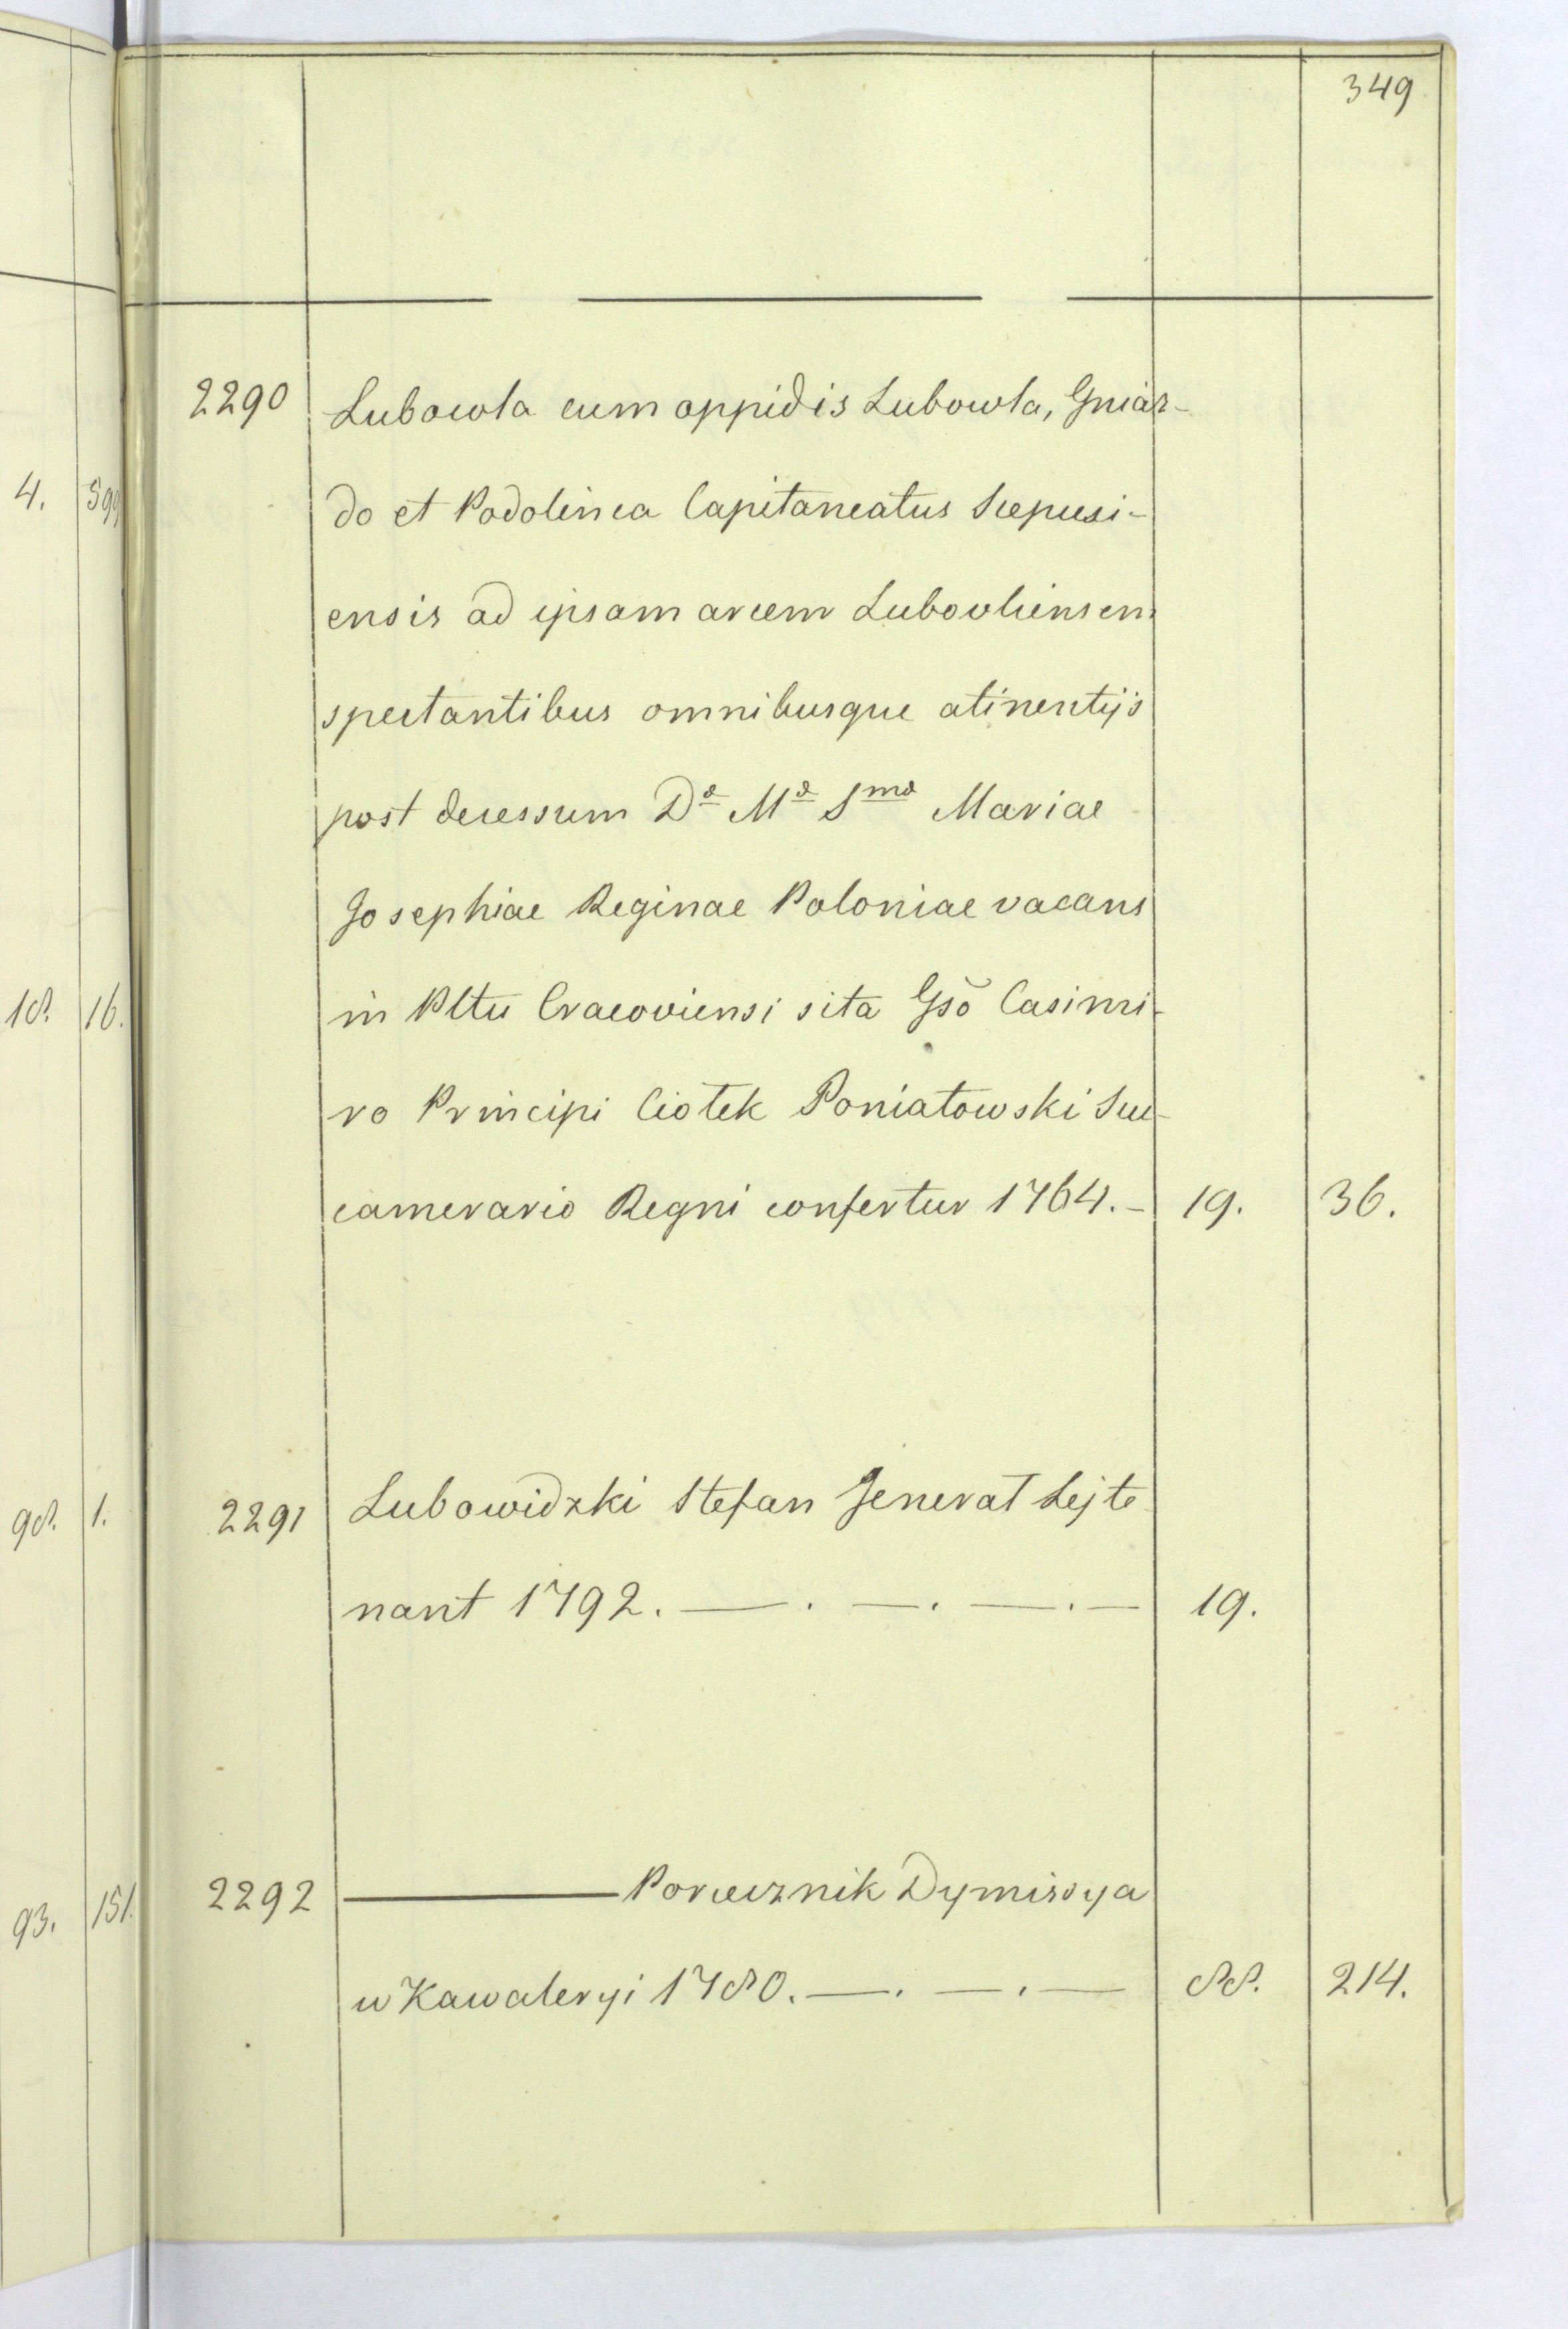 349
2290 Lubowla cum oppidis Lubowla, Gniaz-
do et Podolinca Capitaneatus Scepusi-
ensis ad ipsam arcem Lubovliensem
spectantibus omnibusque atinentijs
post decessum Dᵃ Mᵃ Sᵐᵃ Mariae
Josephiae Reginae Poloniae vacans
in Pltu Cracoviensi sita Gsõ Casimi-
ro Principi Ciołek Poniatowski Suc-
camerario Regni confertur 1764.- 19. 36.
2291 Lubowidzki Stefan Jenerał Lejte
nant 1792. —. —. —. — 19.
2292 ——— Porucznik Dymissya
w Kawaleryi 1780. —. —. — 88. 214.
4. 599
18. 16.
98. 1.
93. 151.